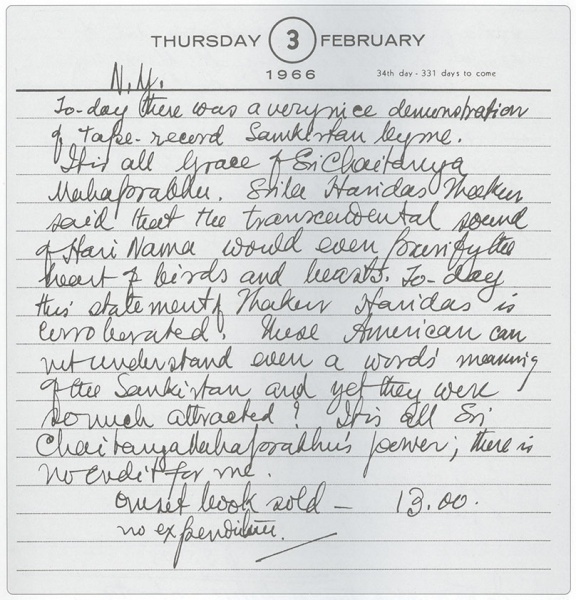 THURSDAY 3 FEBRUARY
1966 34th day - 331 days to come
N.Y.
To-day there was a very nice demonstration
of Tape-record Samkirtan by me.
It is all Grace of Sri Chaitanya
Mahaprabhu. Srila Haridas Thakur
said that the transcendental sound
of Hari Nama would even purify the
heart of birds and beasts. To-day
this statement of Thakur Haridas is
corroborated. These American can
not understand even a word's meaning
of the Samkirtan and yet they were
so much attracted! It is all Sri
Chaitanya Mahaprabhu's power; there is
no credit for me.
One set book sold — 13.00.
no expenditure.